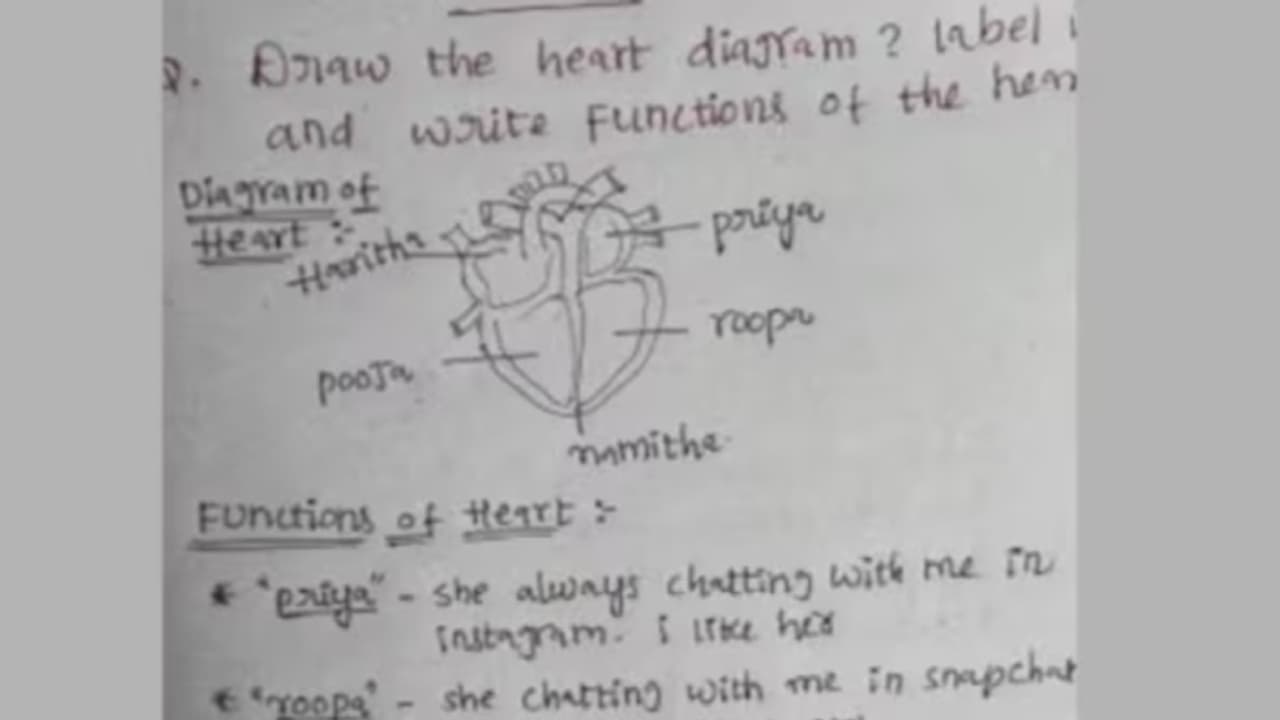 Q. Draw the heart diagram ? label
and write Functions of the
Diagram of
Heart :-
Haritha
priya
roopa
pooja
namitha
Functions of Heart :-
* "priya" - she always chatting with me in
instagram. i like her
* "roopa" - she chatting with me in snapchat